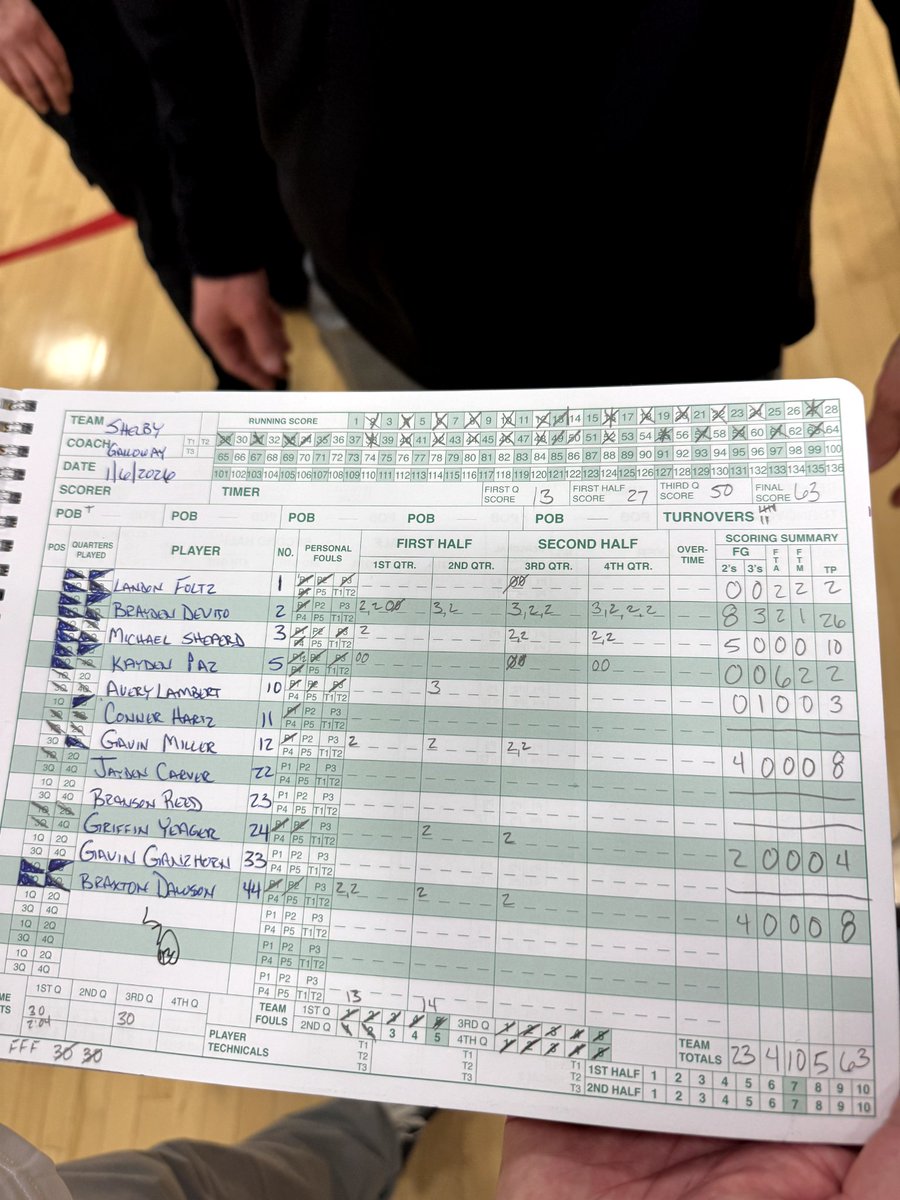 TEAM SHELBY RUNNING SCORE 1 2 3 4 5 6 7 8 9 10 11 12 13 14 15 16 17 18 19 20 21 22 23 24 25 26 27 28
COACH GALLOWAY T1 T2 T3 29 30 31 32 33 34 35 36 37 38 39 40 41 42 43 44 45 46 47 48 49 50 51 52 53 54 55 56 57 58 59 60 61 62 63 64
65 66 67 68 69 70 71 72 73 74 75 76 77 78 79 80 81 82 83 84 85 86 87 88 89 90 91 92 93 94 95 96 97 98 99 100
DATE 1/6/2026 101 102 103 104 105 106 107 108 109 110 111 112 113 114 115 116 117 118 119 120 121 122 123 124 125 126 127 128 129 130 131 132 133 134 135 136
SCORER TIMER FIRST Q SCORE 13 FIRST HALF SCORE 27 THIRD Q SCORE 50 FINAL SCORE 63
POB POB POB POB POB TURNOVERS
POS QUARTERS PLAYED PLAYER NO. PERSONAL FOULS FIRST HALF SECOND HALF OVER-TIME SCORING SUMMARY
1ST QTR. 2ND QTR. 3RD QTR. 4TH QTR. FG 2's 3's FTA FTM TP
LANDON FOLTZ 1 P1 P2 P3 P4 P5 T1 T2 00 0 0 2 2 2
BRAYDEN DEVITO 2 P1 P2 P3 P4 P5 T1 T2 2,2 00 3,2 3,2,2 3,2,2,2 8 3 2 1 26
MICHAEL SHEPERD 3 P1 P2 P3 P4 P5 T1 T2 2 2,2 2,2 5 0 0 0 10
KAYDEN PAZ 5 P1 P2 P3 P4 P5 T1 T2 00 00 00 0 0 6 2 2
AVERY LAMBERT 10 P1 P2 P3 P4 P5 T1 T2 3 0 1 0 0 3
CONNER HARTZ 11 P1 P2 P3 P4 P5 T1 T2
GAVIN MILLER 12 P1 P2 P3 P4 P5 T1 T2 2 2 2,2 4 0 0 0 8
JAYDEN CARVER 22 P1 P2 P3 P4 P5 T1 T2
BRANSON REED 23 P1 P2 P3 P4 P5 T1 T2
GRIFFIN YEAGER 24 P1 P2 P3 P4 P5 T1 T2 2 2 2 0 0 0 4
GAVIN GANZHORN 33 P1 P2 P3 P4 P5 T1 T2
BRAXTON DAWSON 44 P1 P2 P3 P4 P5 T1 T2 2,2 2 2 4 0 0 0 8
1Q 2Q 3Q 4Q P1 P2 P3 P4 P5 T1 T2
1Q 2Q 3Q 4Q P1 P2 P3 P4 P5 T1 T2
1Q 2Q 3Q 4Q P1 P2 P3 P4 P5 T1 T2
1ST Q 2ND Q 3RD Q 4TH Q 13 14
30 2:04 30
TEAM FOULS 1ST Q 1 2 3 4 5 3RD Q 1 2 3 4 5
2ND Q 1 2 3 4 5 4TH Q 1 2 3 4 5
TEAM TOTALS 23 4 10 5 63
PLAYER TECHNICALS T1 T2 T3 T1 T2 T3 T1 T2 T3
1ST HALF 1 2 3 4 5 6 7 8 9 10
2ND HALF 1 2 3 4 5 6 7 8 9 10
FFF 30 30